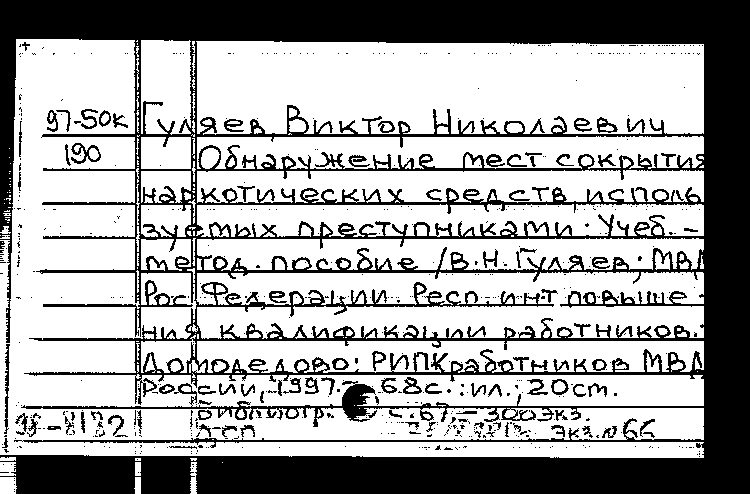 97-50к Гуляев, Виктор Николаевич
190 Обнаружение мест сокрытия
наркотических средств, исполь
зуемых преступниками: Учеб. -
метод. пособие /В.Н. Гуляев; МВД
Рос. Федерации. Респ. инт повыше -
ния квалификации работников. -
Домодедово: РИПКработников МВД
России, 1997. - 68с.: ил.; 20см.
Библиогр.: с. 67. - 300экз.
98-8132 ДСП. Экз. № 66